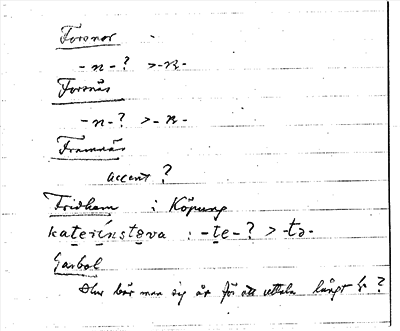 Forsnor
- n - ? > - n -
Forsnäs
- n - ? > - n -
Framnäs
accent ?
Fridhem : Köpung
katerinstova : -te- ? > -tə-
Gasbol
bär man sig åt för att uttala långt ?